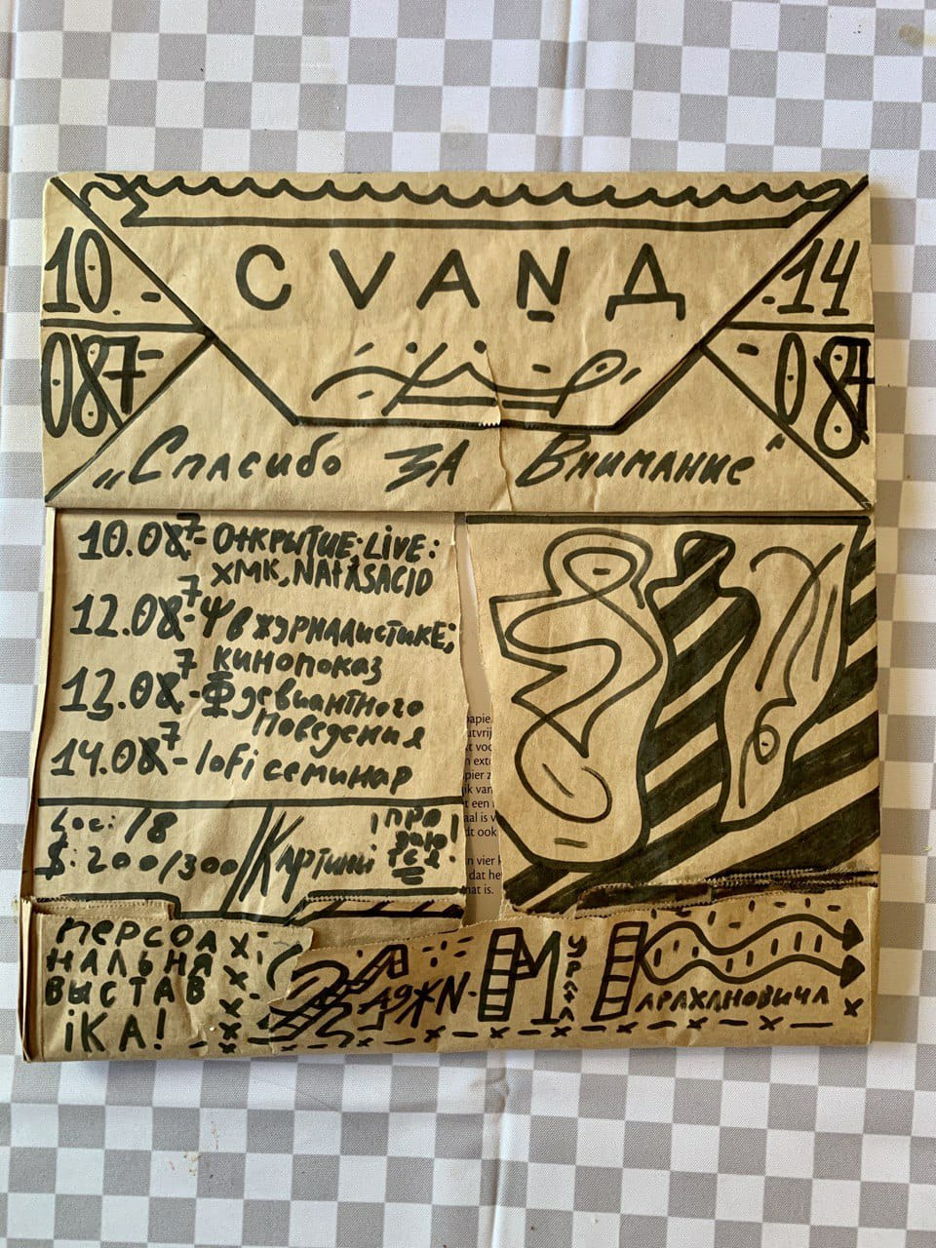 CVAND
10.
-14
087-
-087
„Спасибо ЗА Внимание"
10.087-Открытие·LiVE:
ХМК, NAtASACID
12.087-Ψ в журналистике;
кинопоказ
13.087-Ф девиантного
поведения
14.087-lofi семинар
Loc: 18
$: 200/300
Картині
¡продаются!
персо
нальня
выстав
іка!
М
арахановича
papie